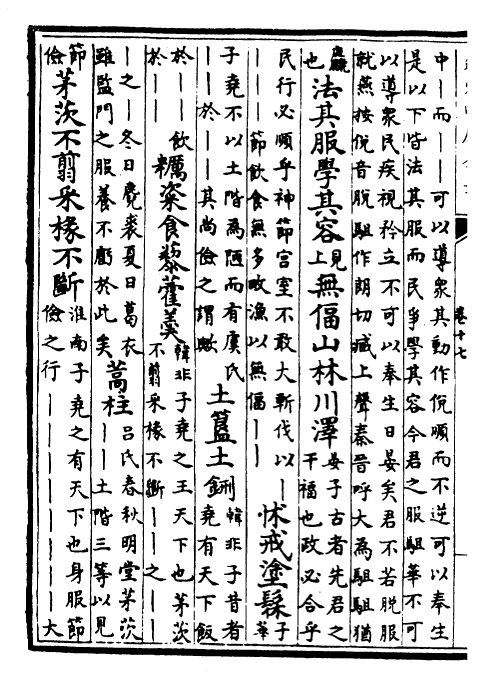 卷十七
中｜而｜｜可以導衆其動作俛順而不逆可以奉生
是以下皆法其服而民爭學其容今君之服駔華不可
以導衆民疾視矜立不可以奉生日晏矣君不若脫服
就燕按俛音脫駔作朗切臧上聲秦晉呼大為駔駔猶
麤也
法其服學其容
見上
無偪山林川澤
晏子古者先君之
干福也政必合乎
民行必順乎神節宫室不敢大斬伐以｜
｜｜｜節飲食無多畋漁以無偪｜｜
怵戒塗髹
子華
子堯不以土階為陋而有虞氏
｜於｜｜其尚儉之謂歟
土簋土鉶
韓非子昔者
堯有天下飯
於｜｜飲
於｜｜
糲粢食藜藿羹
韓非子堯之王天下也茅茨
不翦采椽不斷｜｜之｜｜
｜之｜｜冬日麑裘夏日葛衣
雖監門之服養不虧於此矣
蒿柱
吕氏春秋明堂茅茨
｜｜土階三等以見
節儉
茅茨不翦采椽不斷
淮南子堯之有天下也身服節
儉之行｜｜｜｜｜｜｜｜大